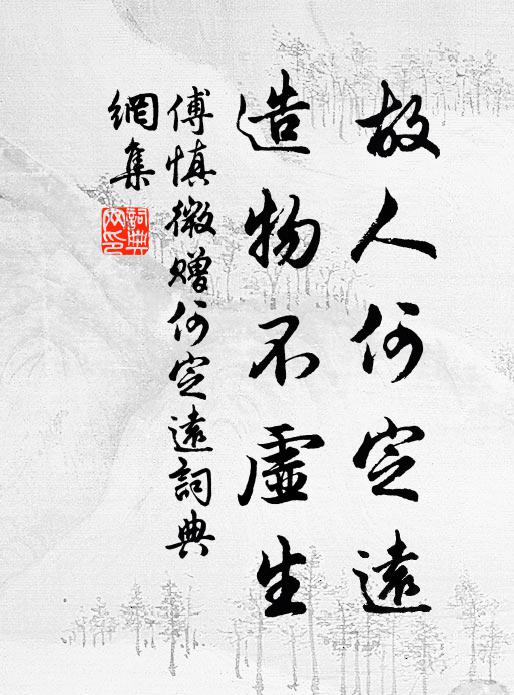 故人何定遠
造物不虛生
傅慎微贈何定遠詞典
網集
詞典網印